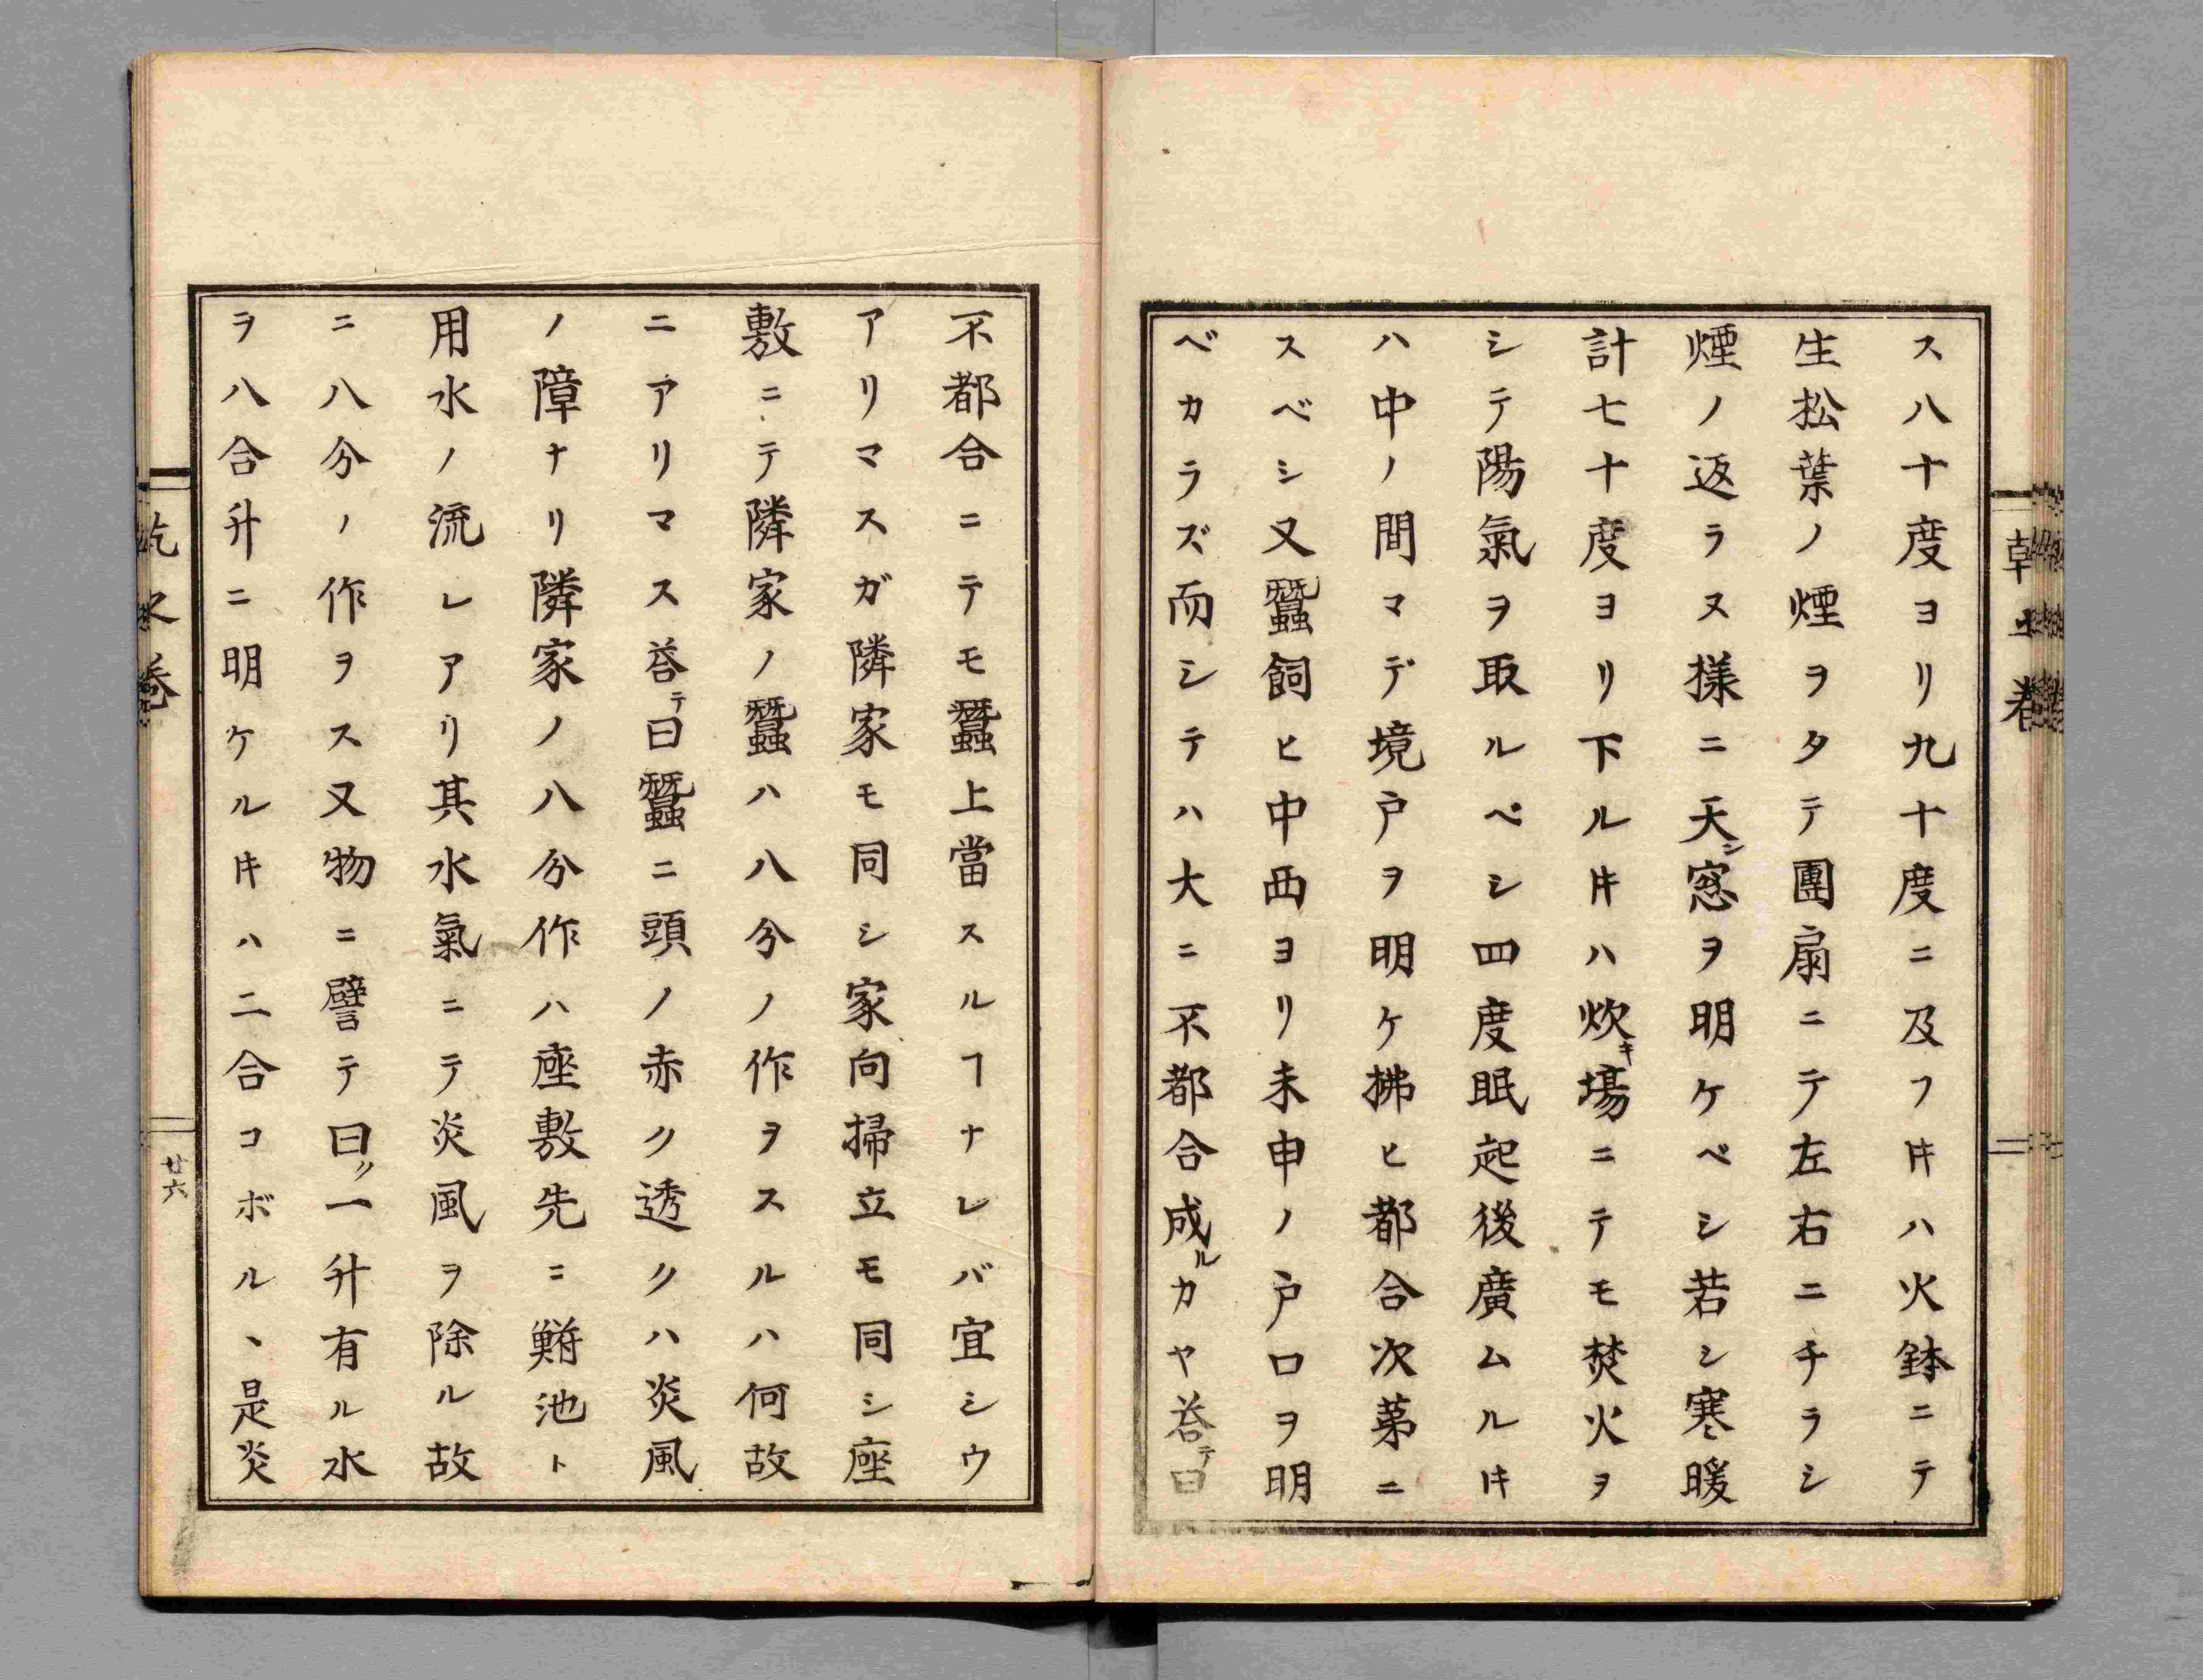 ス八十度ヨリ九十度ニ及フ𪜈ハ火鉢ニテ
生松葉ノ煙ヲタテ團扇ニテ左右ニチラシ
煙ノ返ラヌ様ニ天シ窓ヲ明ケベシ若シ寒暖
計七十度ヨリ下ルキハ炊キ場ニテモ焚火ヲ
シテ陽氣ヲ取ルベシ四度眠起後廣ムルキ
ハ中ノ間マデ境戸ヲ明ケ拂ヒ都合次第ニ
スベシ又蠶飼ヒ中西ヨリ未申ノ戸口ヲ明
ベカラズ而シテハ大ニ不都合成ルカヤ答テ曰
不都合ニテモ蠶上當スルヿナレバ宜シウ
アリマスガ隣家モ同シ家向掃立モ同シ座
敷ニテ隣家ノ蠶ハ八分ノ作ヲスルハ何故
ニアリマス答テ曰蠶ニ頭ノ赤ク透クハ炎風
ノ障ナリ隣家ノ八分作ハ座敷先ニ鮒池ト
用水ノ流レアリ其水氣ニテ炎風ヲ除ル故
ニ八分ノ作ヲス又物ニ譬テ曰ク一升有ル水
ヲ八合升ニ明ケルキハ二合コボルヽ是炎
乾之巻
廿六